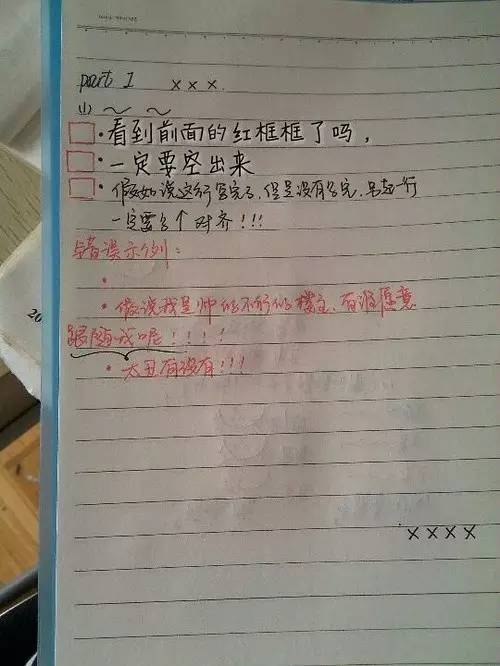 part 1 ×××.
(1) ～ ～
·看到前面的红框框了吗，
·一定要空出来
·假如说这行写完了，但是没有写完，另起一行
一定要多个对齐!!!
错误示例：
·
·假说我是帅的不行的楼主，有谁愿意
跟随我呢!!!!
·太丑有没有!!!
××××